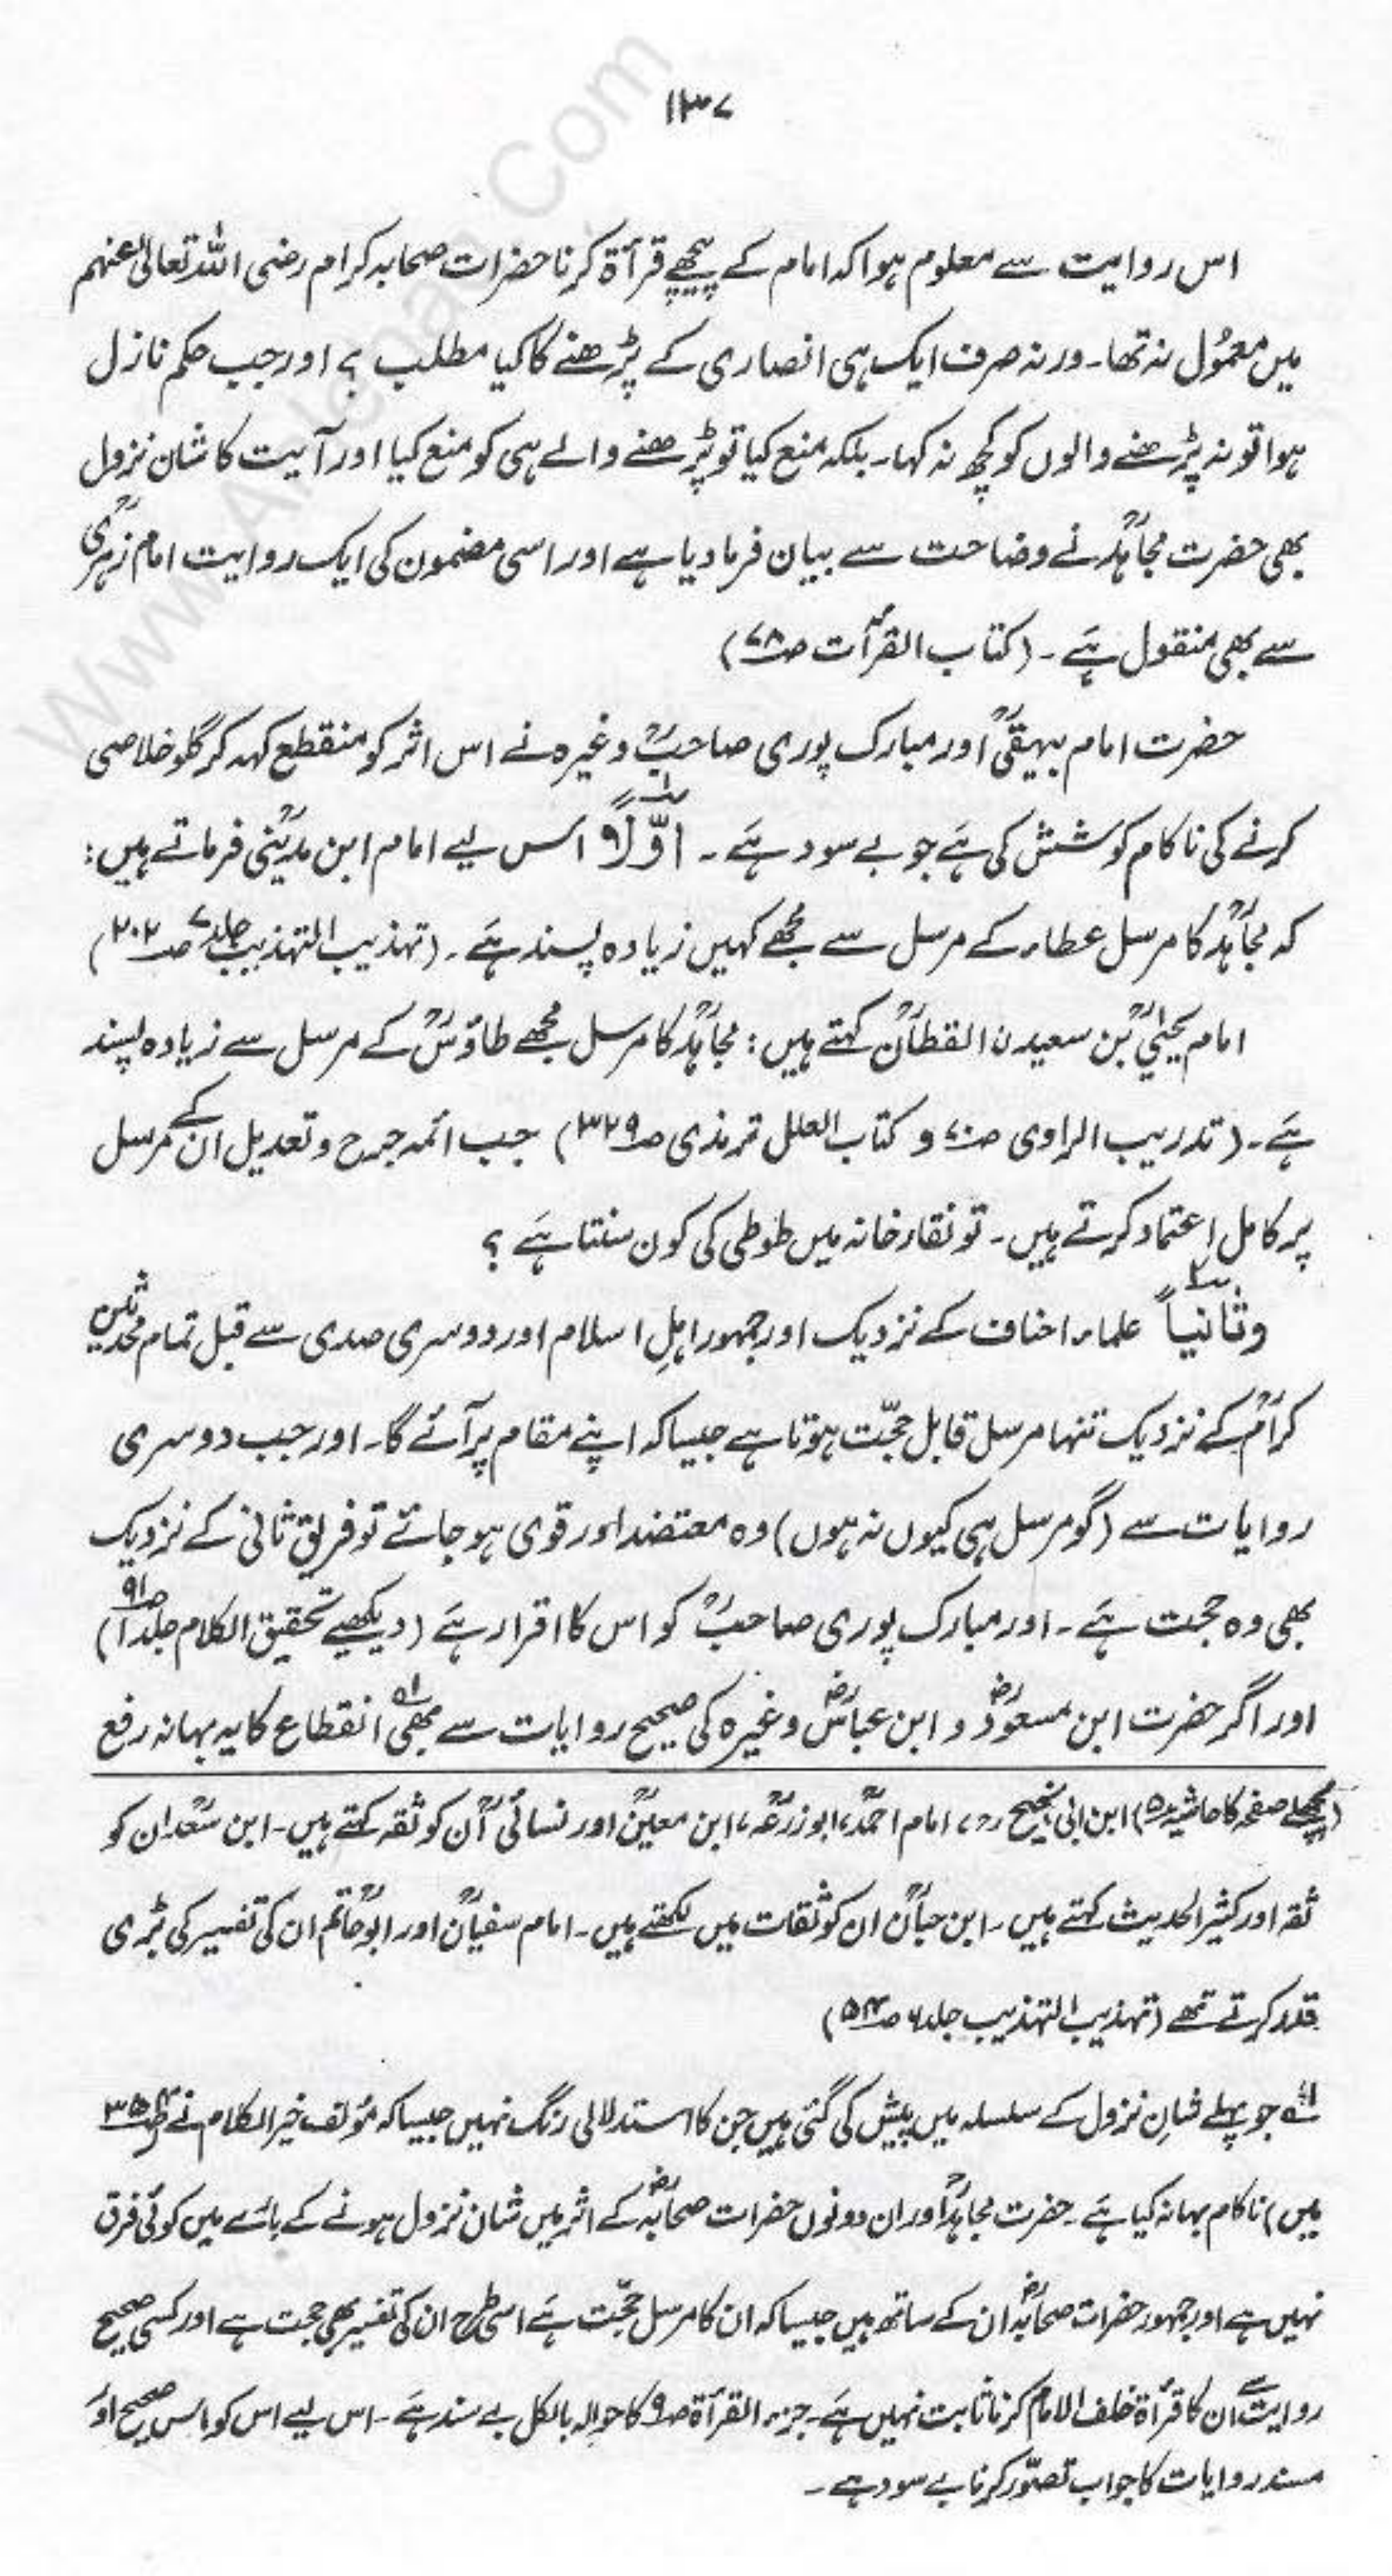 ۱۳۷
اس روایت سے معلوم ہوا کہ امام کے پیچھے قرأۃ کرنا حضرات صحابہ کرام رضی اللہ تعالیٰ عنہم
میں معمُول نہ تھا۔ ورنہ صرف ایک ہی انصاری کے پڑھنے کا کیا مطلب ؟ اور جب حکم نازل
ہوا تو نہ پڑھنے والوں کو کچھ نہ کہا۔ بلکہ منع کیا تو پڑھنے والے ہی کو منع کیا اور آیت کا شان نزول
بھی حضرت مجاہدؒ نے وضاحت سے بیان فرما دیا ہے اور اسی مضمون کی ایک روایت امام زہریؒ
سے بھی منقول ہَے ۔ (کتاب القرأت صـ۷۸)
حضرت امام بیہقیؒ اور مبارک پوری صاحبؒ وغیرہ نے اس اثر کو منقطع کہہ کر گلو خلاصی
کرنے کی ناکام کوشش کی ہَے جو بے سود ہَے ۔ اوّلاً اس لیے امام ابن مدینیؒ فرماتے ہیں :
کہ مجاہدؒ کا مرسل عطاء کے مرسل سے مجھے کہیں زیادہ پسند ہَے ۔ (تہذیب التہذیب جلد۷ صـ۲۰۲)
امام یحییٰؒ بن سعیدن القطانؒ کہتے ہیں : مجاہدؒ کا مرسل مجھے طاؤسؒ کے مرسل سے زیادہ پسند
ہَے ۔ (تدریب الراوی صـ۷۰ و کتاب العلل ترمذی صـ۳۲۹) جب ائمہ جرح و تعدیل ان کے مرسل
پر کامل اعتماد کرتے ہیں ۔ تو نقار خانہ میں طوطی کی کون سنتا ہَے ؟
وثانیاً علماء احناف کے نزدیک اور جمہور اہلِ اسلام اور دوسری صدی سے قبل تمام محدثین
کرامؒ کے نزدیک تنہا مرسل قابل حجّت ہوتا ہے جیسا کہ اپنے مقام پر آئے گا۔ اور جب دوسری
روایات سے (گو مرسل ہی کیوں نہ ہوں) وہ معتضد اور قوی ہو جائے تو فریق ثانی کے نزدیک
بھی وہ حجت ہَے ۔ اور مبارک پوری صاحبؒ کو اس کا اقرار ہَے (دیکھیے تحقیق الکلام جلد۱ صـ۹۱)
اور اگر حضرت ابن مسعودؓ و ابن عباسؓ وغیرہ کی صحیح روایات سے بھی انقطاع کا یہ بہانہ رفع
(پچھلے صفحہ کا حاشیہ ۵) ابن ابی نجیح رح، امام احمدؒ، ابوزرعہؒ، ابن معینؒ اور نسائیؒ اُن کو ثقہ کہتے ہیں۔ ابن سعدؒ ان کو
ثقہ اور کثیر الحدیث کہتے ہیں ۔ ابن حبانؒ ان کو ثقات میں لکھتے ہیں۔ امام سفیانؒ اور ابو حاتمؒ ان کی تفسیر کی بڑی
قدر کرتے تھے (تہذیب التہذیب جلد۶ صـ۵۴)
۱ جو پہلے شانِ نزول کے سلسلہ میں پیش کی گئی ہیں جن کا استدلالی رنگ نہیں جیسا کہ مؤلف خیر الکلام نے
میں) ناکام بہانہ کیا ہَے ۔ حضرت مجاہدؒ اور ان دونوں حضرات صحابہؓ کے اثر میں شان نزول ہونے کے بارے میں کوئی فرق
نہیں ہے اور جمہور حضرات صحابہؓ ان کے ساتھ ہیں جیسا کہ ان کا مرسل حجّت ہَے اسی طرح ان کی تفسیر بھی حجت ہے اور کسی صحیح
روایت سے ان کا قرأۃ خلف الامام کرنا ثابت نہیں ہَے۔ جزء القرأۃ صـ۹ کا حوالہ بالکل بے سند ہَے ۔ اس لیے اس کو اس صحیح اور
مسند روایات کا جواب تصوّر کرنا بے سود ہے ۔